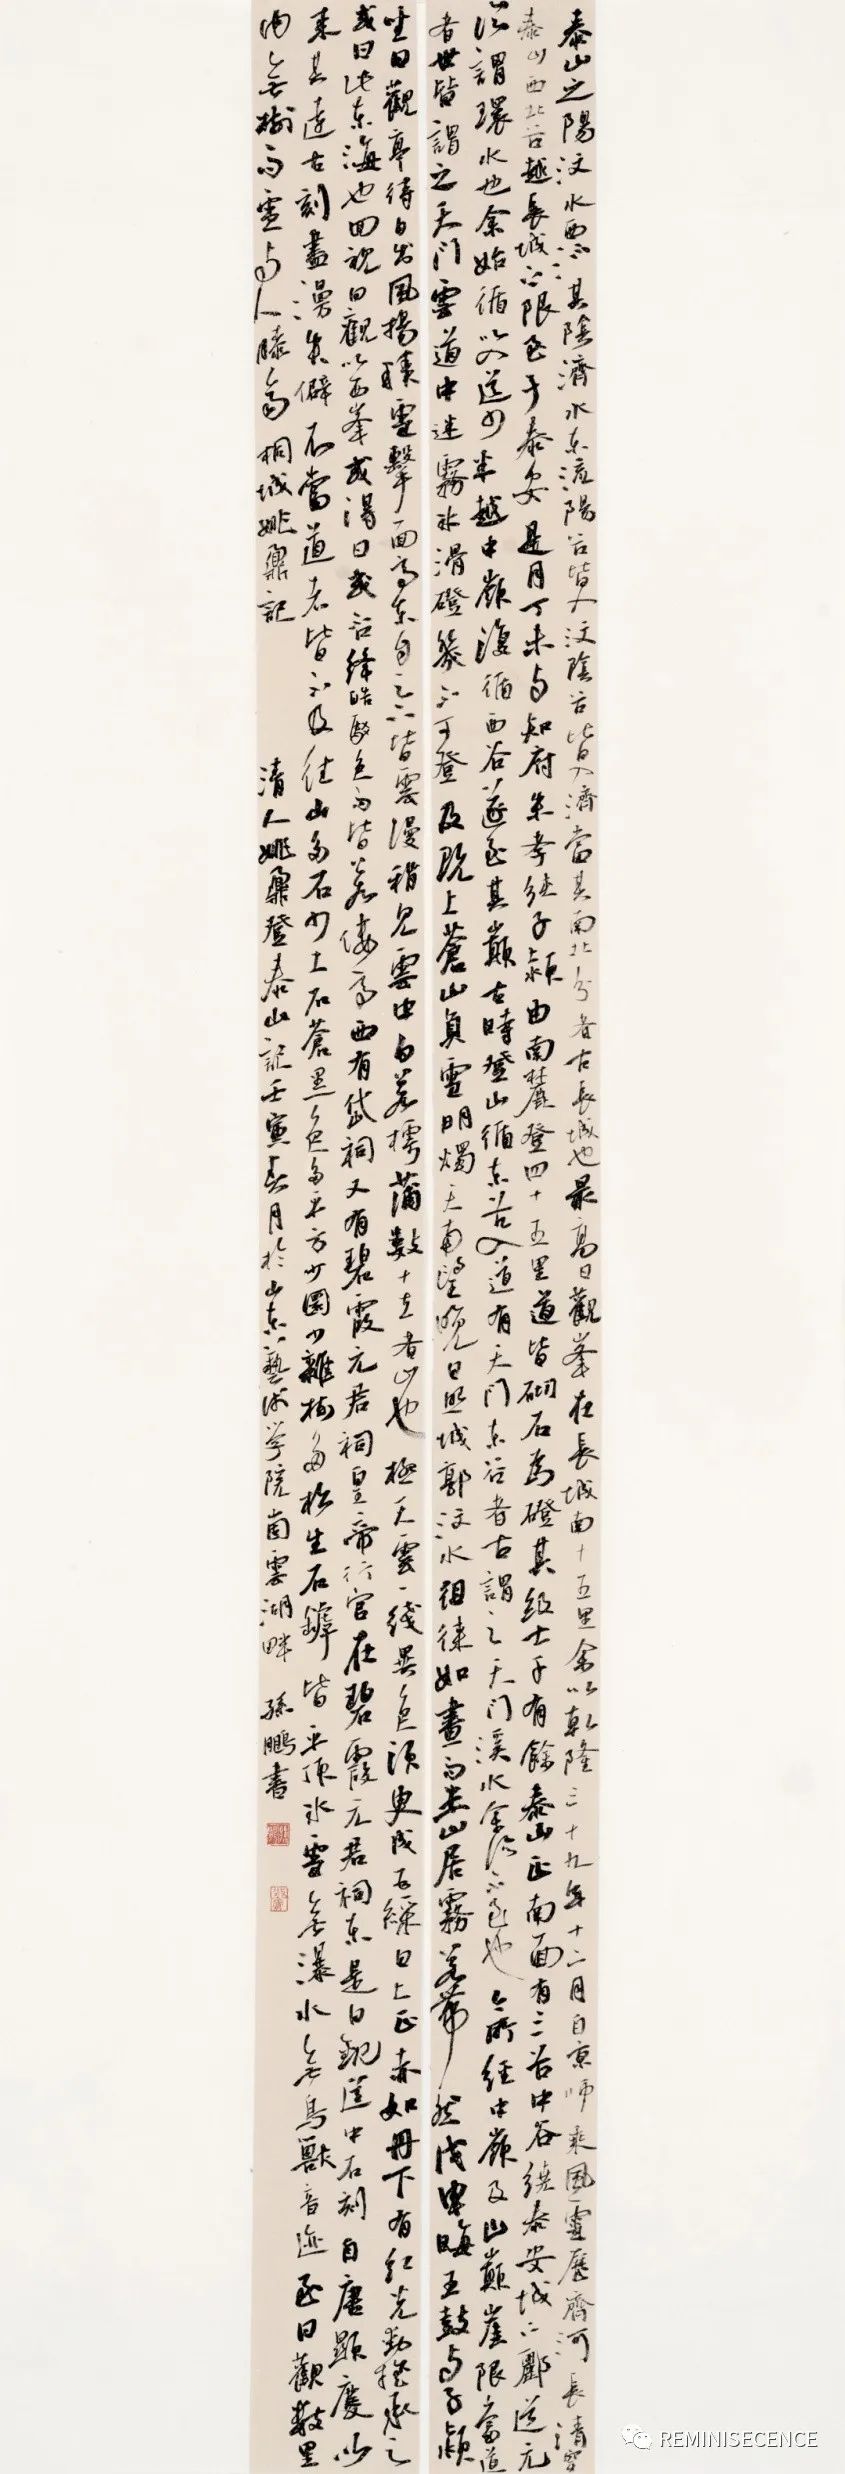 泰山之陽汶水西流其陰濟水東流陽谷皆入汶陰谷皆入濟當其南北分者古長城也最高日觀峯在長城南十五里余以乾隆三十九年十二月自京師乘風雪歷齊河長清穿
泰山西北谷越長城之限至于泰安是月丁未與知府朱孝純子潁由南麓登四十五里道皆砌石為磴其級七千有餘泰山正南面有三谷中谷繞泰安城下酈道元
所謂環水也余始循以入道少半越中嶺復循西谷遂至其巔古時登山循東谷入道有天門東谷者古謂之天門溪水余所不至也今所經中嶺及山巔崖限當道
者世皆謂之天門雲道中迷霧冰滑磴幾不可登及既上蒼山負雪明燭天南望晚日照城郭汶水徂徠如畫而半山居霧若帶然戊申晦五鼓與子潁
坐日觀亭待日出風揚積雪擊面亭東自足下皆雲漫稍見雲中白若樗蒲數十立者山也極天雲一線異色須臾成五綵日上正赤如丹下有紅光動搖承之
或曰此東海也回視日觀以西峯或得日或否絳皓駁色而皆若僂亭西有岱祠又有碧霞元君祠皇帝行宮在碧霞元君祠東是日觀道中石刻自唐顯慶以
來其遠古刻盡漫失僻不當道者皆不及往山多石少土石蒼黑色多平方少圜少雜樹多松生石罅皆平頂冰雪無瀑水無鳥獸音迹至日觀數里
內無樹而雪與人膝齊桐城姚鼐記 清人姚鼐登泰山記壬寅春月於山東藝術学院崮雲湖畔 孫鵬書
REMINISECENCE